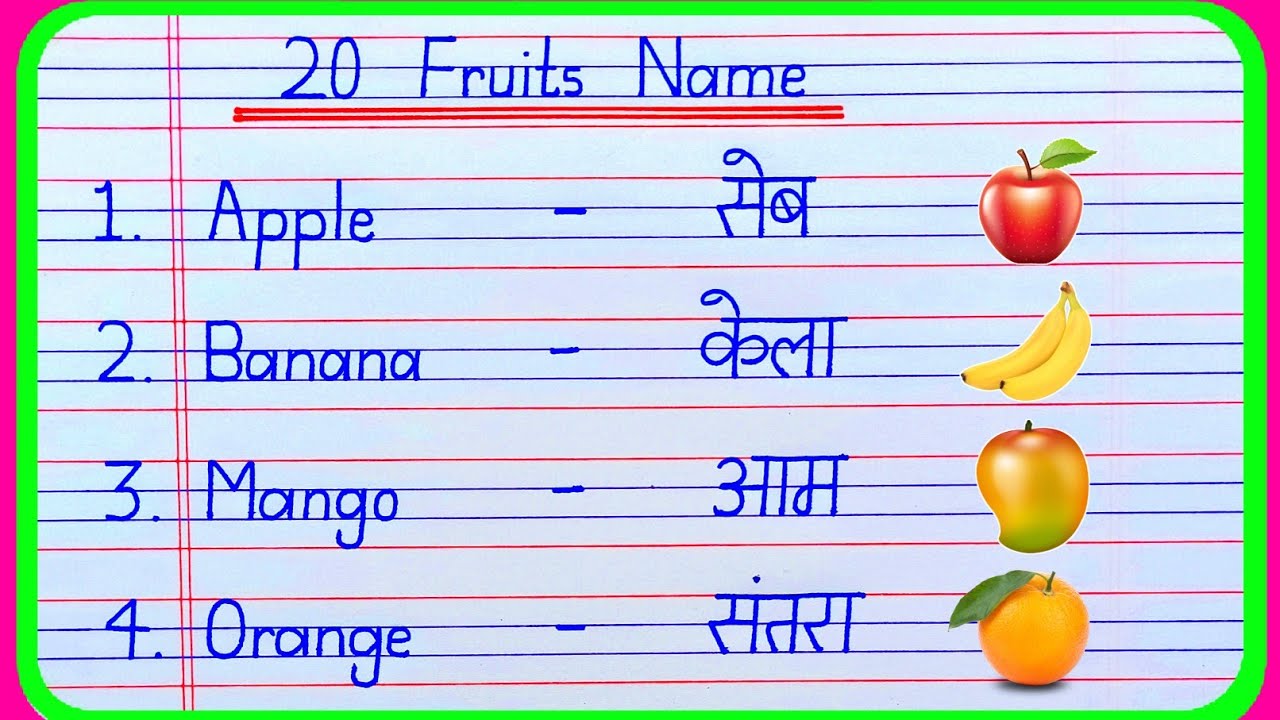 20 Fruits Name
1. Apple - सेब
2. Banana - केला
3. Mango - आम
4. Orange - संतरा